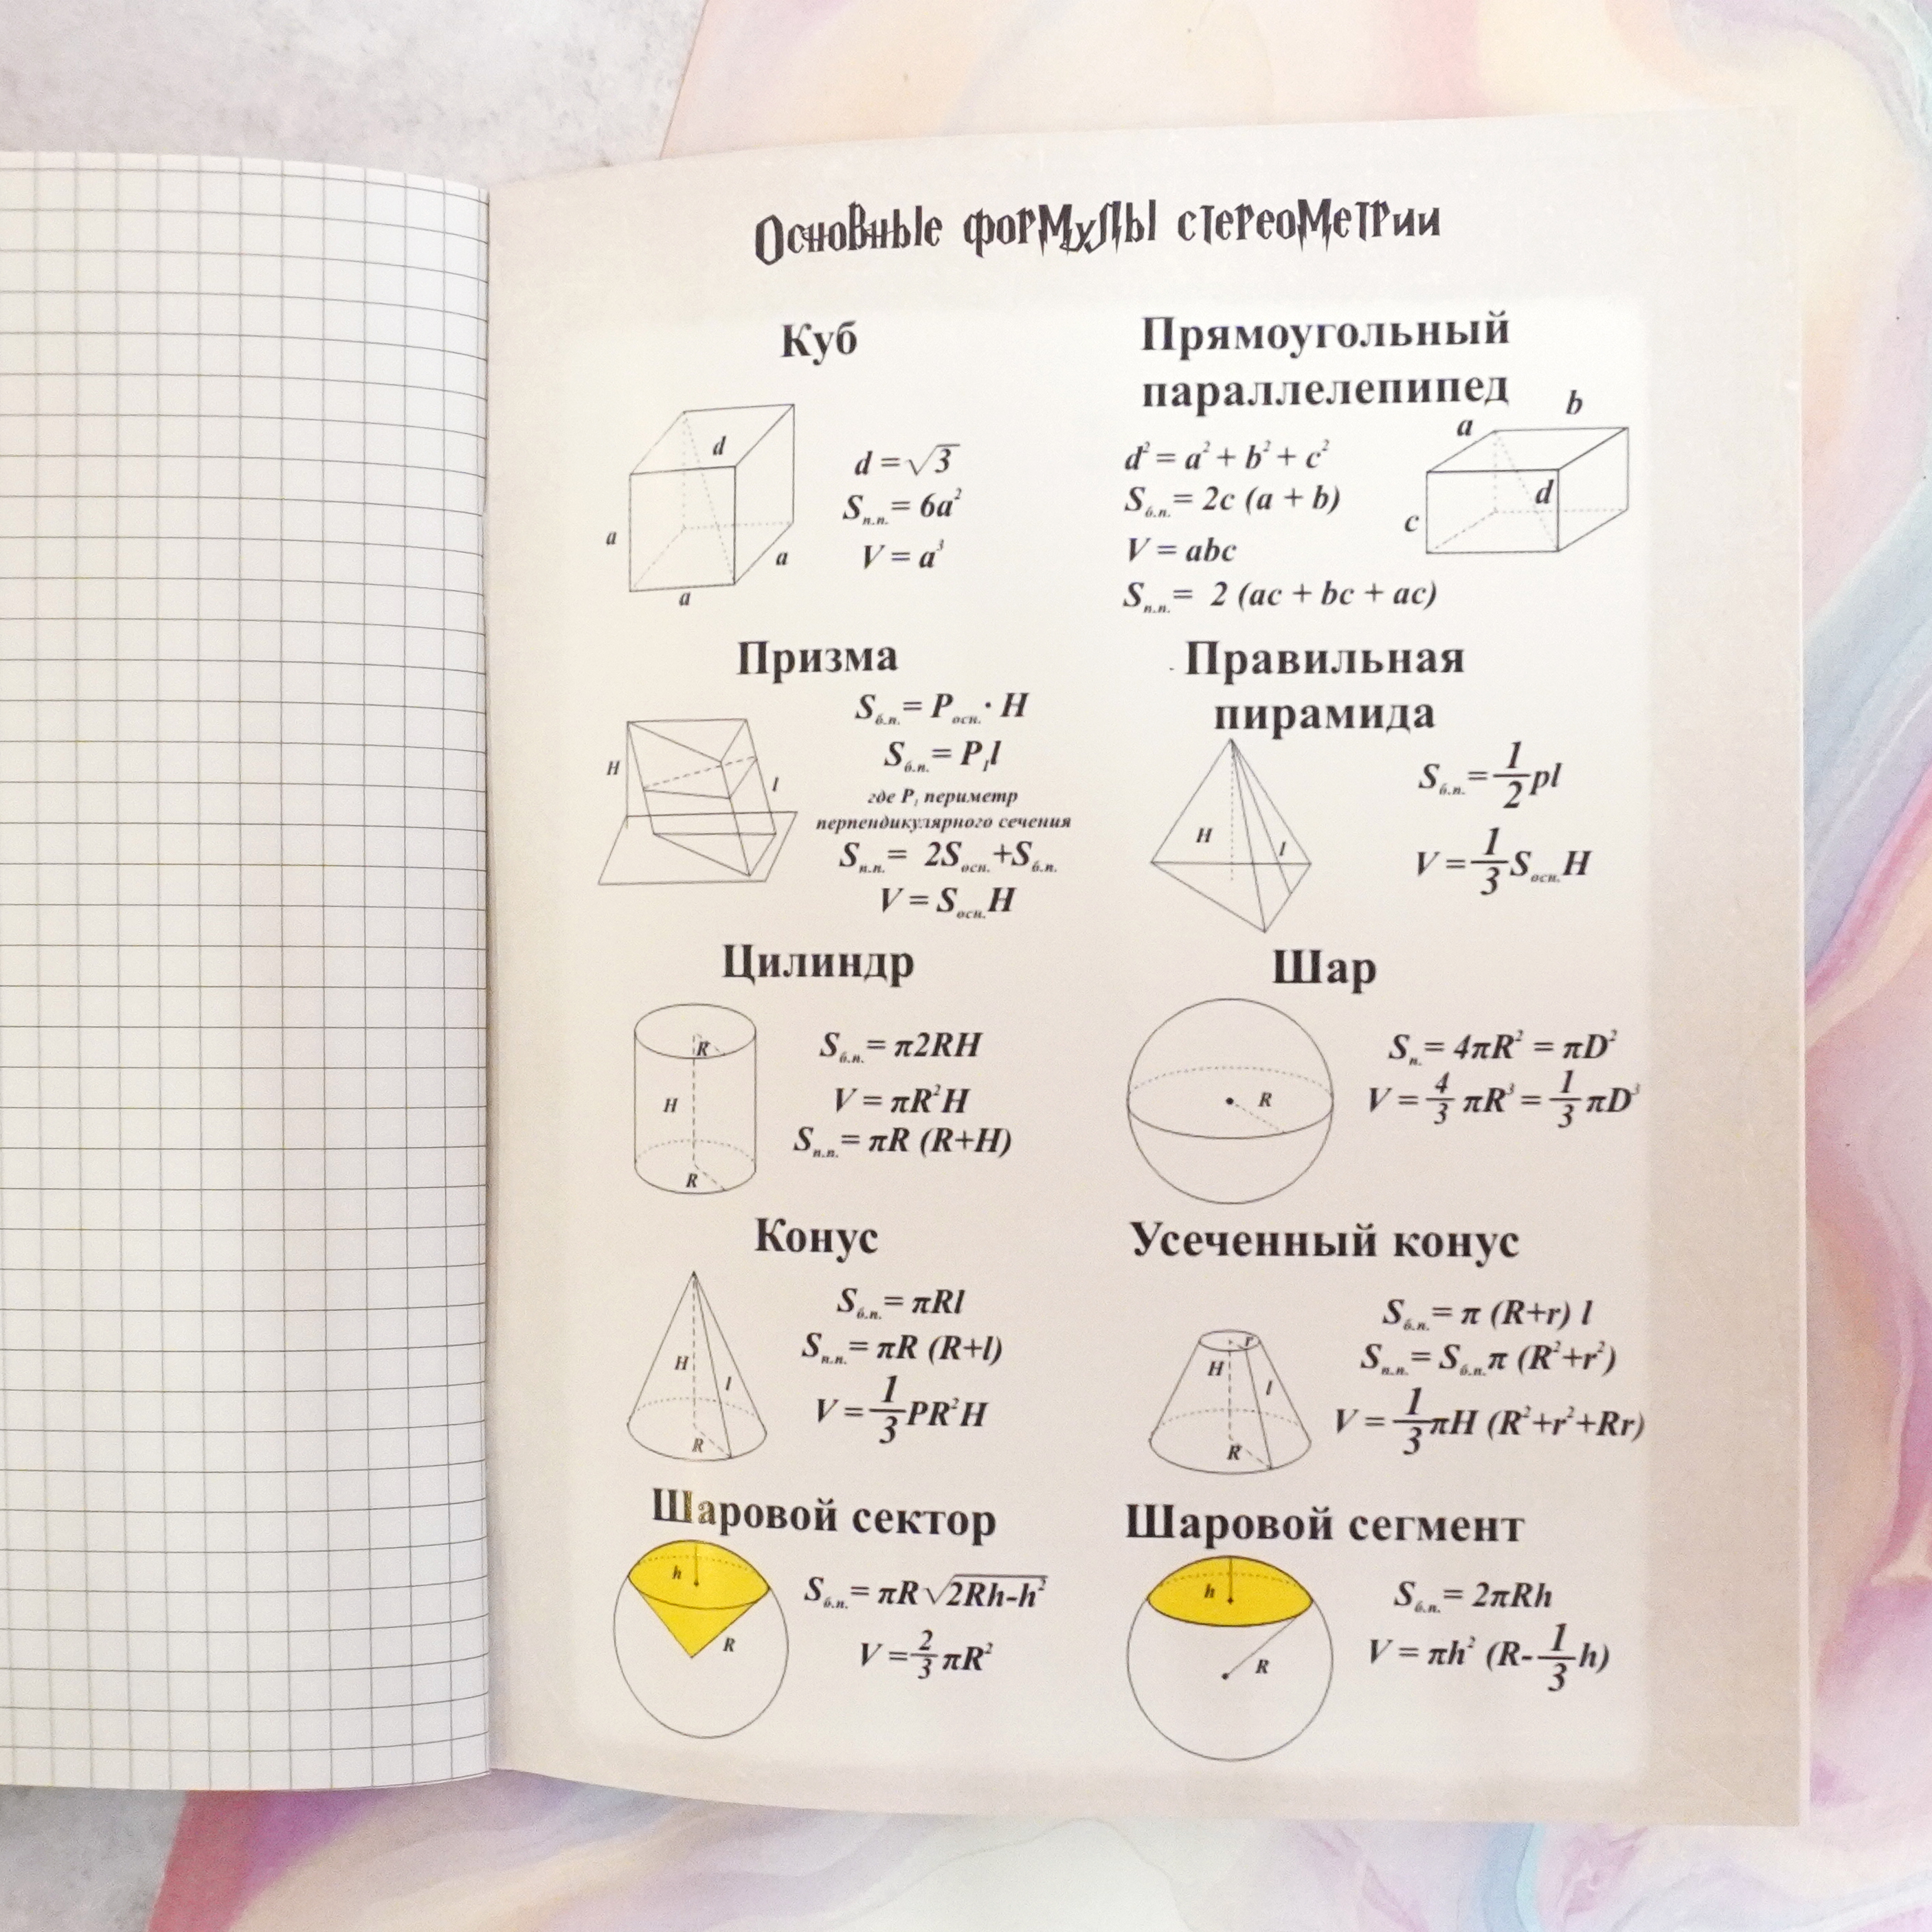 Основные формулы стереометрии
Куб
d
a
a
a
d = √3
Sп.п. = 6a²
V = a³
Прямоугольный
параллелепипед
d² = a² + b² + c²
Sб.п. = 2c (a + b)
V = abc
Sп.п. = 2 (ac + bc + ac)
a
b
c
d
Призма
H
l
Sб.п. = Pосн. · H
Sб.п. = P₁l
где P₁ периметр
перпендикулярного сечения
Sп.п. = 2Sосн. + Sб.п.
V = Sосн. H
Правильная
пирамида
H
l
Sб.п. = 1/2 pl
V = 1/3 Sосн. H
Цилиндр
R
H
R
Sб.п. = π2RH
V = πR²H
Sп.п. = πR (R+H)
Шар
R
Sп. = 4πR² = πD²
V = 4/3 πR³ = 1/3 πD³
Конус
H
l
R
Sб.п. = πRl
Sп.п. = πR (R+l)
V = 1/3 PR²H
Усеченный конус
r
H
l
R
Sб.п. = π (R+r) l
Sп.п. = Sб.п. π (R²+r²)
V = 1/3 πH (R²+r²+Rr)
Шаровой сектор
h
R
Sб.п. = πR √2Rh-h²
V = 2/3 πR²
Шаровой сегмент
h
R
Sб.п. = 2πRh
V = πh² (R- 1/3 h)